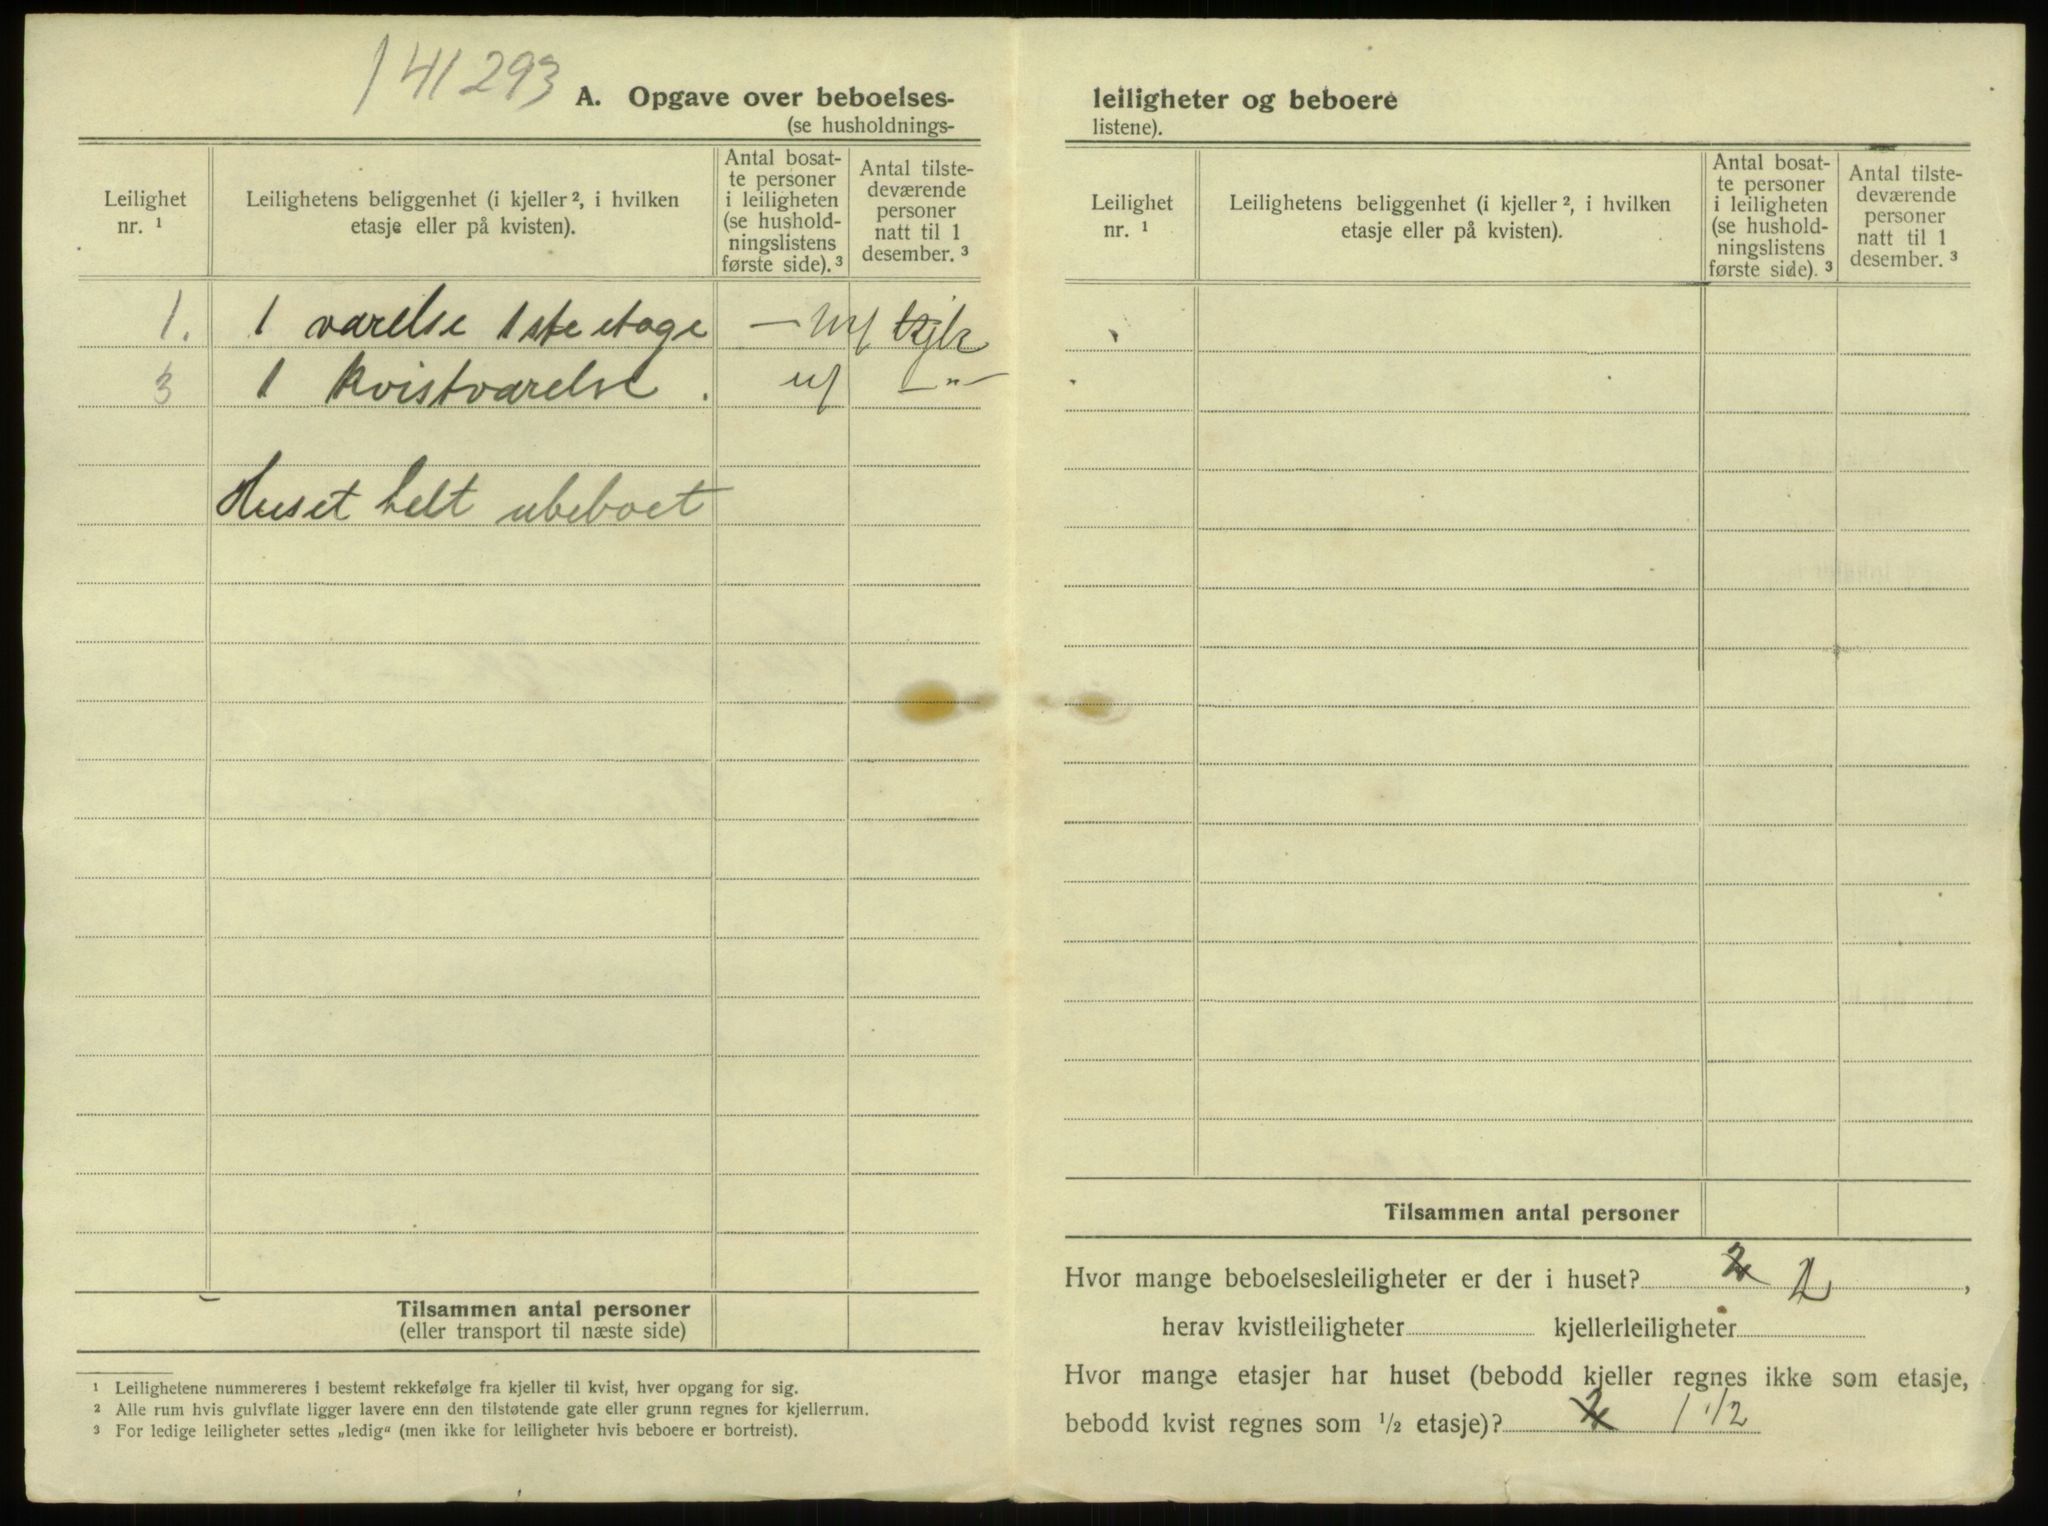 141293
A. Opgave over beboelses-
(se husholdnings-
Leilighet
nr. ¹
Leilighetens beliggenhet (i kjeller ², i hvilken
etasje eller på kvisten).
Antal bosat-
te personer
i leiligheten
(se hushold-
ningslistens
første side). ³
Antal tilste-
deværende
personer
natt til 1
desember. ³
1. 1 varelse 1ste etage —
3 1 kvistvarelse . — „ —
Huset helt ubeboet
Tilsammen antal personer
(eller transport til næste side)
¹ Leilighetene nummereres i bestemt rekkefølge fra kjeller til kvist, hver opgang for sig.
² Alle rum hvis gulvflate ligger lavere enn den tilstøtende gate eller grunn regnes for kjellerrum.
³ For ledige leiligheter settes „ledig“ (men ikke for leiligheter hvis beboere er bortreist).
leiligheter og beboere
listene).
Leilighet
nr. ¹
Leilighetens beliggenhet (i kjeller ², i hvilken
etasje eller på kvisten).
Antal bosat-
te personer
i leiligheten
(se hushold-
ningslistens
første side). ³
Antal tilste-
deværende
personer
natt til 1
desember. ³
Tilsammen antal personer
Hvor mange beboelsesleiligheter er der i huset? 2 2,
herav kvistleiligheter kjellerleiligheter
Hvor mange etasjer har huset (bebodd kjeller regnes ikke som etasje,
bebodd kvist regnes som ½ etasje)? 2 1 1/2